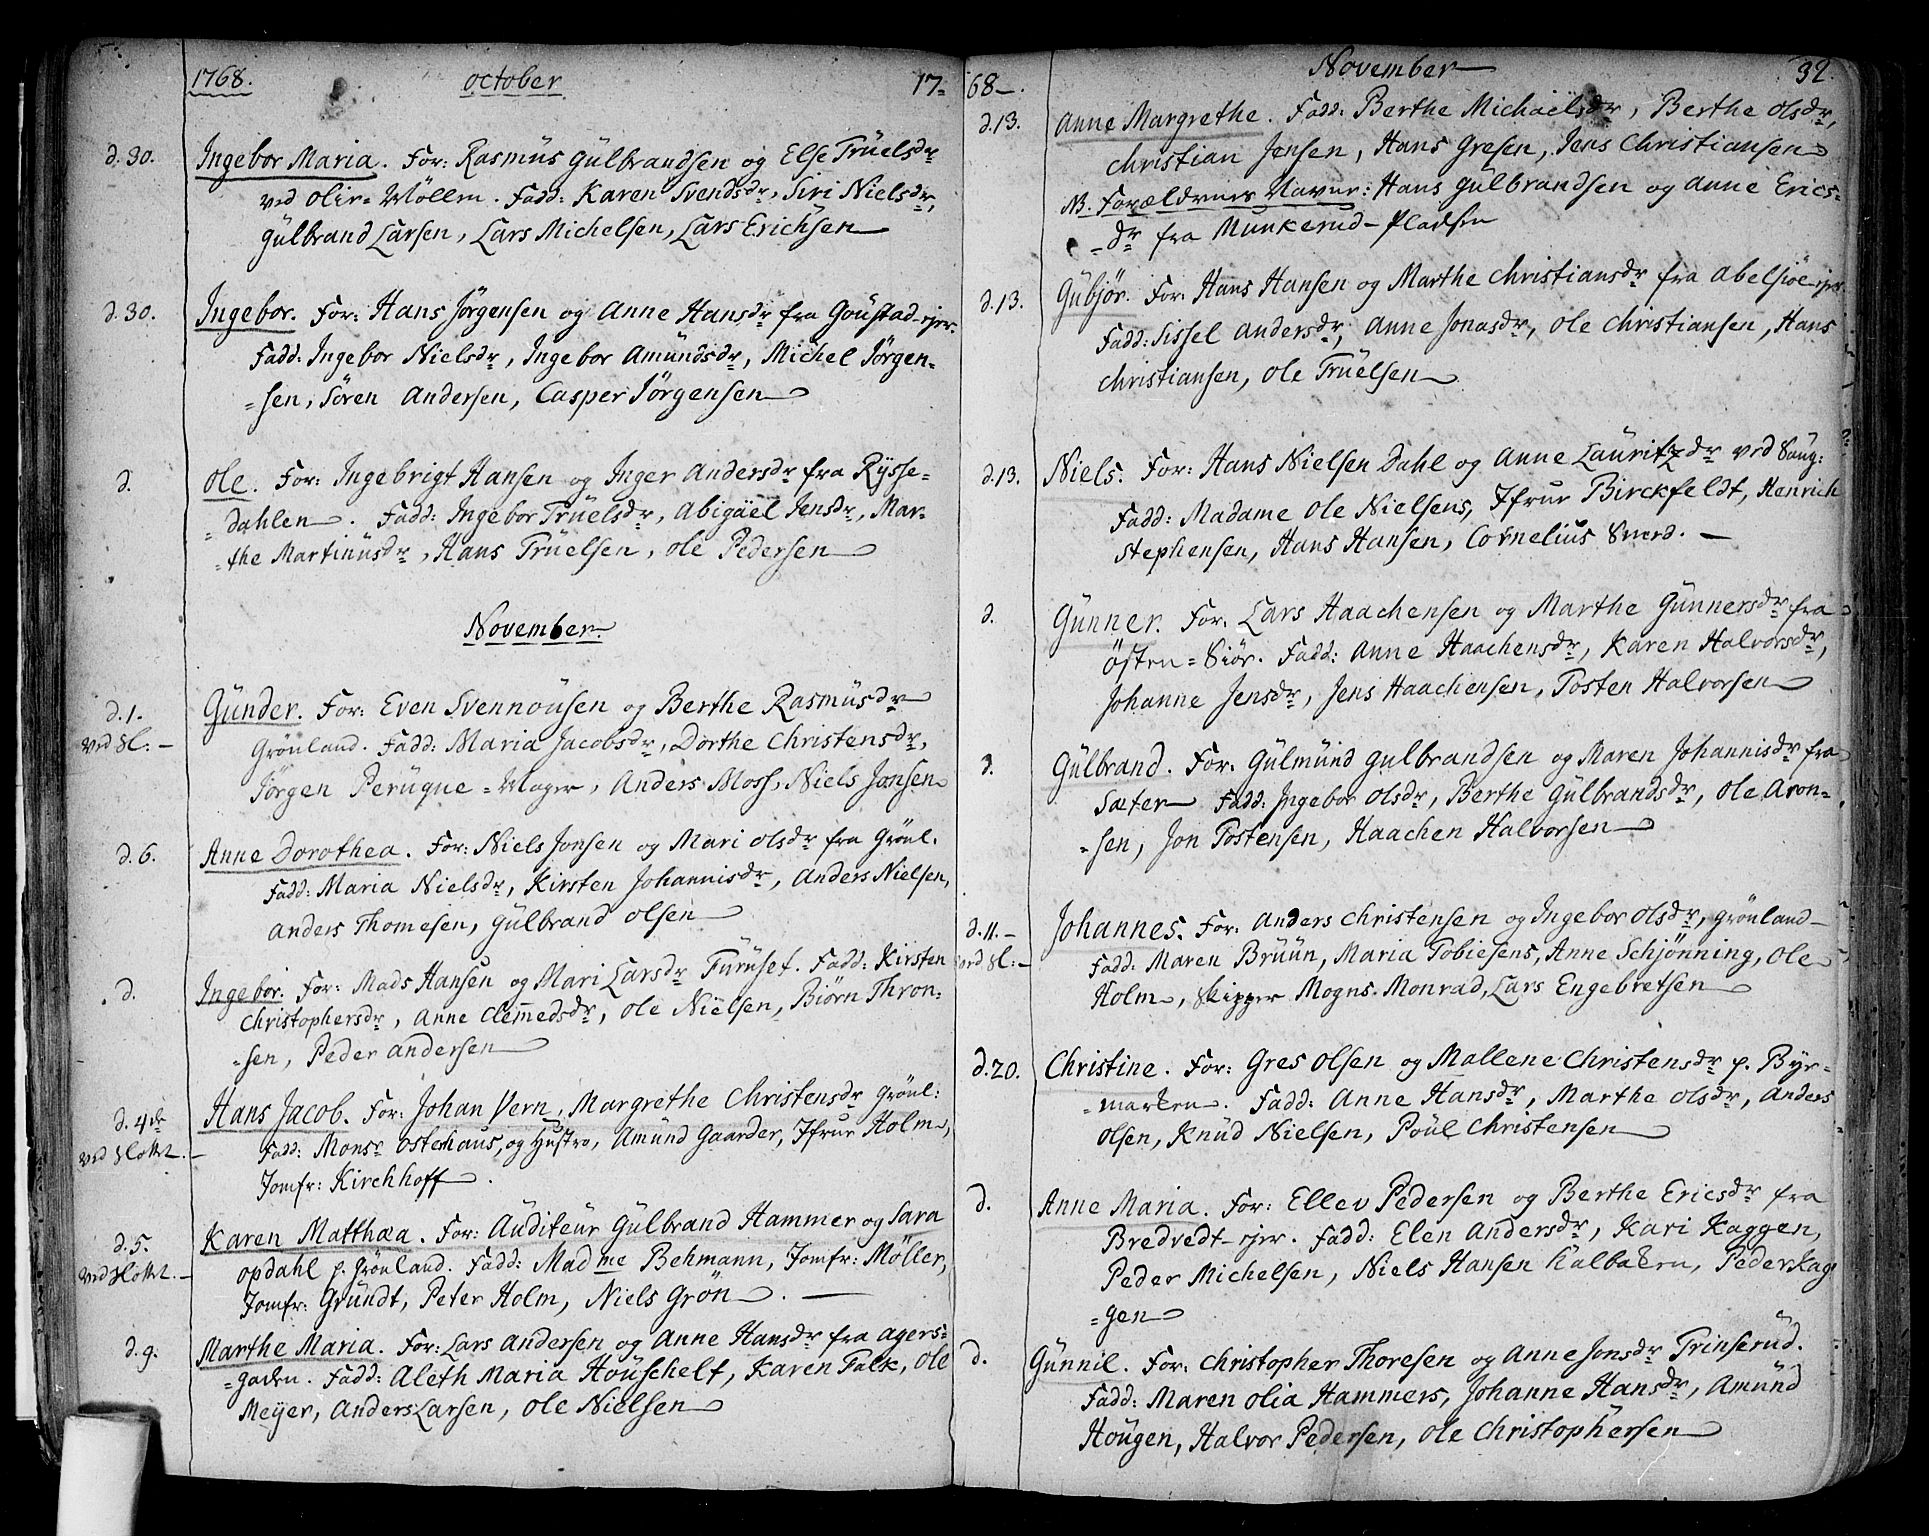 1768. October 17-
d. 30. Ingebor Maria. For: Rasmus Gülbrandsen og Else Trüelsdr
ved Olie-Möllen. Fadd: Karen Svendsdr, Siri Nielsdr,
Gülbrand Larsen, Lars Michelsen, Lars Erichsen
d. 30. Ingebor. For: Hans Jörgensen og Anne Hansdr fra Goustad-ejer.
Fadd: Ingebor Nielsdr, Ingebor Amundsdr, Michel Jörgen-
-sen, Sören Andersen, Casper Jörgensen
d. Ole. For: Ingebrigt Hansen og Inger Andersdr fra Rysse-
-dahlen. Fadd: Ingebor Trüelsdr, Abigäel Jensdr, Mar-
-the Martinüsdr, Hans Trüelsen, Ole Pedersen
November
d. 1. Günder. For: Even Svennousen og Berthe Rasmüsdr
ved Sl: - Grönland. Fadd: Maria Jacobsdr, Dorthe Christensdr,
Jörgen Peruque-Mager, Anders Moss, Niels Jonsen
d. 6. Anne Dorothea. For: Niels Jonsen og Mari Olsdr fra Grönl.
Fadd: Maria Nielsdr, Kirsten Johannisdr, Anders Nielsen,
Anders Thomesen, Gülbrand Olsen
d. Ingebor. For: Mads Hansen og Mari Larsdr Furuset. Fadd: Kirsten
Christophersdr, Anne Clemmedsdr, Ole Nielsen, Biörn Thron-
-sen, Peder Andersen
d. 4de Hans Jacob. For: Johan Vern, Margrethe Christensdr Grönl:
ved Slottet. - Fadd: Monsr Osterhaus, og Hustro, Amünd Gaarder, Jfrue Holm,
Jomfr: Kirchhoff.
d. 5. Karen Matthæa. For: Auditeur Gülbrand Hammer og Sara
ved Slottet. - Opdahl p. Grönland. Fadd: Madme Behmann, Jomfr: Möller,
Jomfr: Grundt, Peter Holm, Niels Grön.
d. 9. Marthe Maria. For: Lars Andersen og Anne Hansdr fra Agers-
-gaden. Fadd: Aleth Maria Houschelt, Karen Falk, Ole
Meyer, Anders Larsen, Ole Nielsen
68. November 32.
d. 13. Anne Margrethe. Fadd: Berthe Michaelsdr, Berthe Olsdr,
Christian Jensen, Hans Gresen, Jens Christiansen
NB. Forældrenes Navne: Hans Gülbrandsen og Anne Erics-
-dr fra Munkerud-Pladsen
d. 13. Gübjör. For: Hans Hansen og Marthe Christiansdr fra Abelsiöe-ejer.
Fadd: Sissel Andersdr, Anne Jonasdr, Ole Christiansen, Hans
Christiansen, Ole Trüelsen
d. 13. Niels. For: Hans Nielsen Dahl og Anne Lauritzdr ved Saug:
Fadd: Madame Ole Nielsens, Jfrue Birckfeldt, Henrich
Stephensen, Hans Hansen, Cornelius Sverd. -
d. Günner. For: Lars Haachensen og Marthe Gunnersdr fra
Östen-Siöe. Fadd: Anne Haachensdr, Karen Halvorsdr,
Johanne Jensdr, Jens Haachensen, Tosten Halvorsen
d. Gülbrand. For: Gülmund Gulbrandsen og Maren Johannisdr fra
Sæter Fadd: Ingebor Olsdr, Berthe Gülbrandsdr, Ole Aron-
-sen, Jon Tostensen, Haachen Halvorsen
d. 11. - Johannes. For: Anders Christensen og Ingebor Olsdr, Grönland
ved Sl: - Fadd: Maren Bruun, Maria Tobiesens, Anne Schjönning, Ole
Holm, Skipper Mogns. Monrad, Lars Engebretsen
d. 20. Christine. For: Gres Olsen og Mallene Christensdr p. Byr-
-marken. Fadd: Anne Hansdr, Marthe Olsdr, Anders
Olsen, Knüd Nielsen, Poül Christensen
d. Anne Maria. For: Ellev Pedersen og Berthe Ericsdr fra
Bredvedt-ejer. Fadd: Elen Andersdr, Kari Kaggen,
Peder Michelsen, Niels Hansen Kalbakken, Peder Kag
-gen
d. Günnil. For: Christopher Thoresen og Anne Jonsdr Trinserud.
Fadd: Maren Olia Hammers, Johanne Hansdr, Amünd
Hougen, Halvor Pedersen, Ole Christophersen